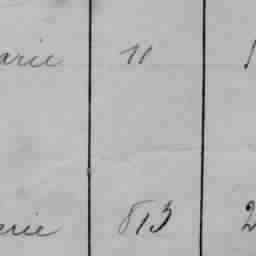 arie 11
erie 813 2